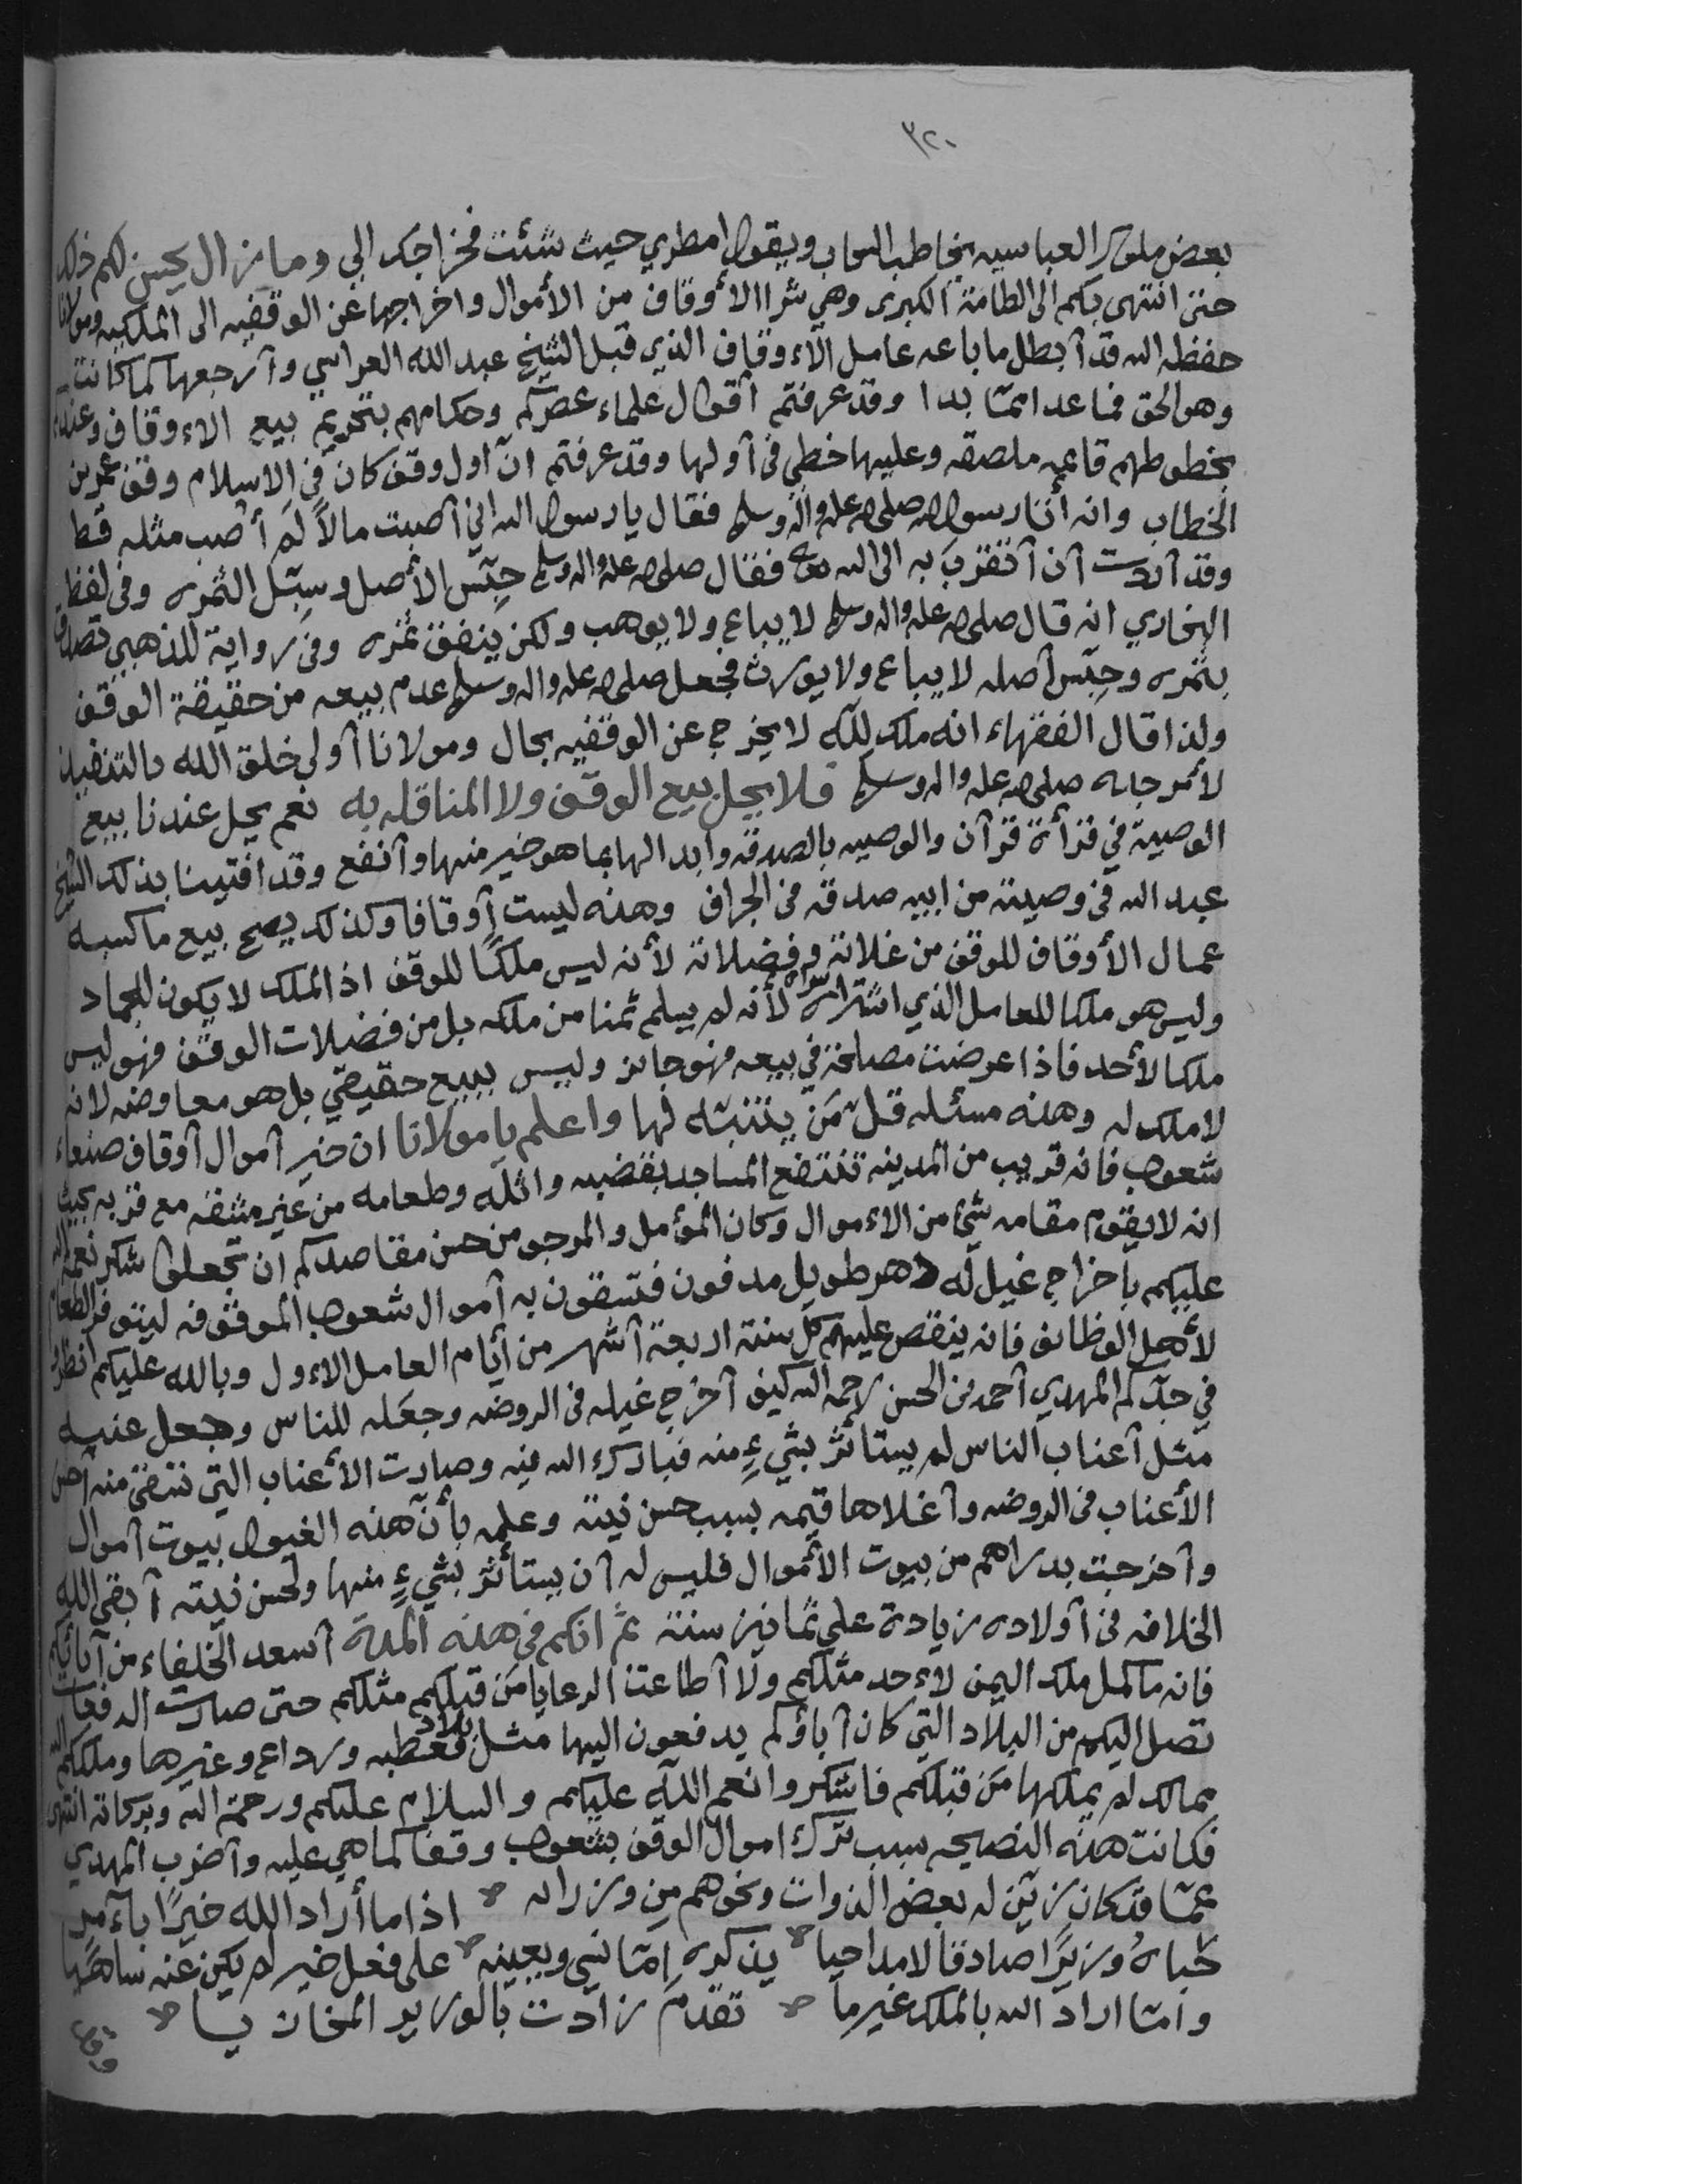 ٣٢٠
بعض ملوك العباسيه يخاطب السحاب ويقول امطري حيث شئت فخراجك الي وما زال يحسن لكم ذلك
حتى انتهى بكم الى الطامة الكبرى وهي شرا الأوقاف من الأموال واخراجها عن الوقفيه الى الملكيه ومولانا
حفظه الله قد أبطل ما باعه عامل الأوقاف الذي قبل الشيخ عبد الله العراسي وأرجعها كما كانت
وهو الحق فما عدا مما بدا وقد عرفتم أقوال علماء عصركم وحكامهم بتحريم بيع الاوقاف وعندكم
بخطوطهم قاعيه ملصقه وعليها خطي في أولها وقد عرفتم ان أول وقف كان في الاسلام وقف عمر بن
الخطاب وانه أتا رسول الله صلى الله عليه وآله وسلم فقال يا رسول الله اني أصبت مالاً لم أصب مثله قط
وقد أردت أن أتقرب به الى الله تعالى فقال صلى الله عليه واله وسلم حبّس الأصل وسبّل الثمره وفي لفظ
البخاري انه قال صلى الله عليه واله وسلم لا يباع ولا يوهب ولكن ينفق ثمره وفي رواية للذهبي تصدق
بثمره وحبّس أصله لا يباع ولا يورث فجعل صلى الله عليه واله وسلم عدم بيعه من حقيقة الوقف
ولذا قال الفقهاء انه ملك لله لا يخرج عن الوقفيه بحال ومولانا أولى خلق الله بالتنفيذ
لأمر جده صلى الله عليه واله وسلم فلا يحل بيع الوقف ولا المناقله به نعم يحل عندنا بيع
الوصية في قرأة قرآن والوصيه بالصدقه وابدالها بما هو خير منها وأنفع وقد افتينا بذلك الشيخ
عبد الله في وصيته من ابيه صدقه في الجراف وهذه ليست أوقافا وكذلك يصح بيع ما كسبه
عمال الأوقاف للوقف من غلاته وفضلاته لأنه ليس ملكًا للوقف اذ الملك لا يكون للجماد
وليس هو ملكا للعامل الذي اشتراه لأنه لم يسلم ثمنا من ملكه بل من فضلات الوقف فهو ليس
ملكا لأحد فاذا عرضت مصلحة في بيعه فهو جائز وليس ببيع حقيقي بل هو معاوضه لانه
لا ملك له وهذه مسئله قلّ مَن يتنبّه لها واعلم يا مولانا ان خير أموال أوقاف صنعاء
شعوب فانه قريب من المدينه تنتفع المساجد بقضبه واثله وطعامه من غير مشقه مع قربه بحيث
انه لا يقوم مقامه شيٌ من الاموال وكان المؤمل والمرجو من حسن مقاصدكم ان تجعلوا شكر نعم الله
عليكم بأخراج غيل له دهر طويل مدفون فتسقون به أموال شعوب الموقوفه ليتوفر الطعام
لأهل الوظائف فانه ينقص عليهم كل سنة اربعة أشهر من أيام العامل الاول وبالله عليكم انظروا
في جدّكم المهدي أحمد بن الحسن رحمه الله كيف أخرج غيله في الروضه وجعله للناس وجعل عنبه
مثل أعناب الناس لم يستأثر بشيءٍ منه فبارك الله فيه وصارت الأعناب التي تسقى منه أحسن
الأعناب في الروضه وأغلاها قيمه بسبب حسن نيته وعلمه بأن هذه الغيول بيوت أموال
وأخرجت بدراهم من بيوت الأموال فليس له أن يستأثر بشيءٍ منها ولحسن نيته أبقى الله
الخلافه في أولاده زيادة على ثمانين سنة ثم انكم في هذه المدة أسعد الخلفاء من آبائكم
فانه ما كمل ملك اليمن لأحد مثلكم ولا أطاعت الرعايا مَن قبلكم مثلكم حتى صارت الدفعات
تصل اليكم من البلاد التي كان أباؤكم يدفعون اليها مثل بلاد قعطبه ورداع وغيرها وملككم الله
ممالك لم يملكها مَن قبلكم فاشكروا نعم الله عليكم والسلام عليكم ورحمة الله وبركاته انتهى
فكانت هذه النصيحه سبب ترك اموال الوقف بشعوب وقفا كما هي عليه وأضرب المهدي
عمّا قد كان زيّن له بعض الذوات ونحوهم من وزرائه ۞ اذا ما أراد الله خيرًا بآمر
حباهُ وزيرًا صادقا لا مداحيا ۞ يذكره امّا نسي ويعينه ۞ على فعل خير لم يكن عنه ساهيًا
وامّا اراد الله بالملك غير ما ۞ تقدّم زادت بالوزير المخازيا ۞